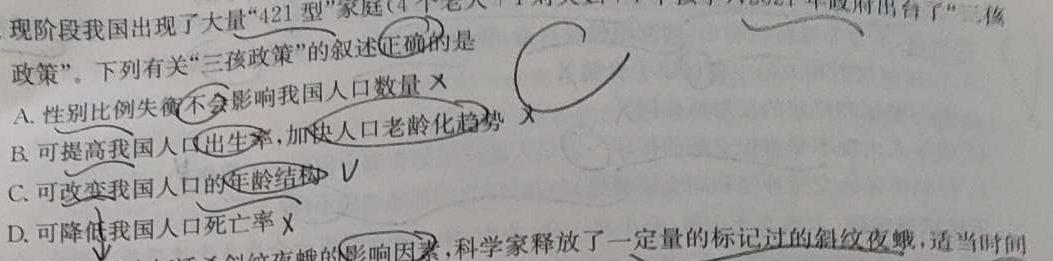 现阶段我国出现了大量“421型”家庭(4个老人、1对夫妇、1个孩子),2021年政府出台了“三孩
政策”。下列有关“三孩政策”的叙述正确的是
A. 性别比例失衡不会影响我国人口数量 ×
B. 可提高我国人口出生率,加快人口老龄化趋势 ×
C. 可改变我国人口的年龄结构 √
D. 可降低我国人口死亡率 ×
斜纹夜蛾的影响因素,科学家释放了一定量的标记过的斜纹夜蛾,适当时间